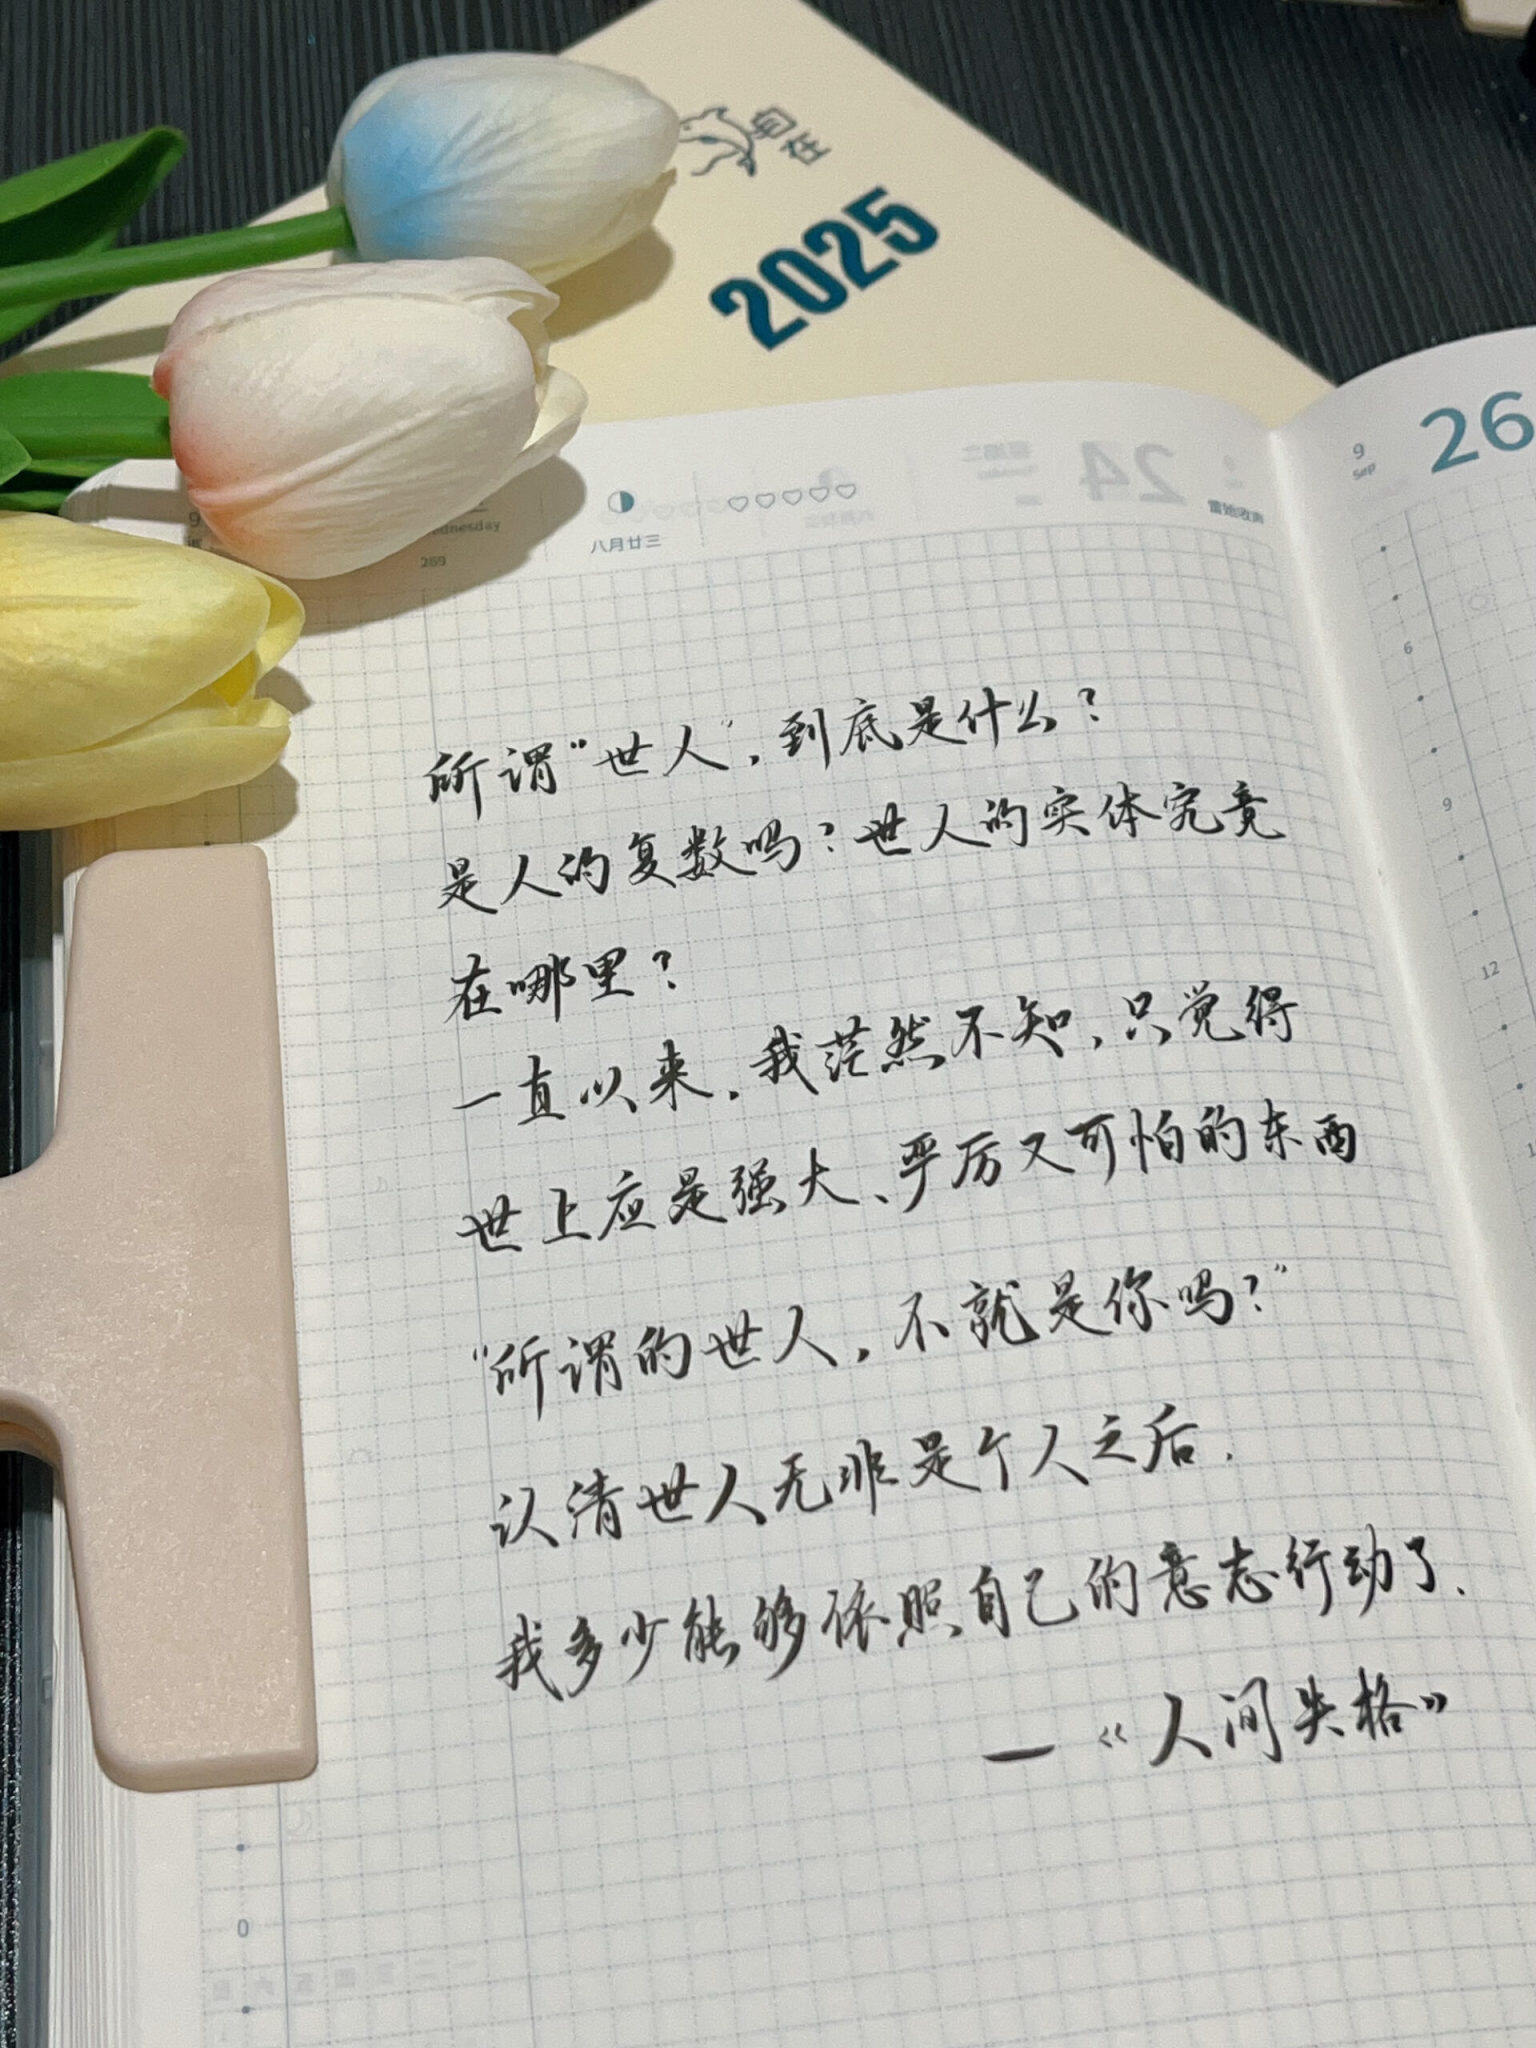 自在
2025
9
Wednesday
269
八月廿三
雷始收声
9
Sep
26
6
9
12
所谓“世人”，到底是什么？
是人的复数吗？世人的实体究竟
在哪里？
一直以来，我茫然不知，只觉得
世上应是强大、严厉又可怕的东西
“所谓的世人，不就是你吗？”
认清世人无非是个人之后，
我多少能够依照自己的意志行动了、
—《人间失格》
0